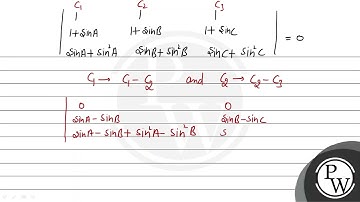 C₁ C₂ C₃
1 1 1
1+sinA 1+sinB 1+sinC = 0
sinA+sin²A sinB+sin²B sinC+sin²C
C₁ → C₁-C₂ and C₂ → C₂-C₃
0 0
sinA-sinB sinB-sinC
sinA-sinB+sin²A-sin²B S
P
W